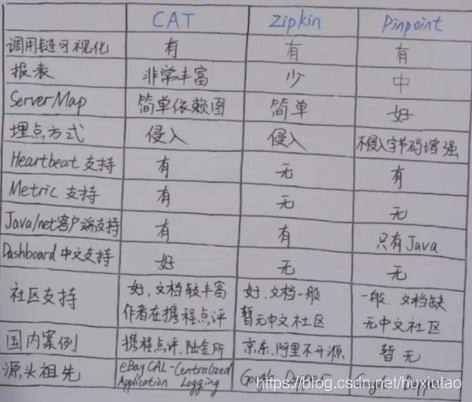 CAT Zipkin Pinpoint
调用链可视化 有 有 有
报表 非常丰富 少 中
ServerMap 简单依赖图 简单 好
埋点方式 侵入 侵入 不侵入字节码增强
Heartbeat支持 有 无 有
Metric支持 有 无 无
Java/net客户端支持 有 有 只有Java
Dashboard中文支持 好 无 无
社区支持 好,文档较丰富 好,文档一般 一般、文档缺
作者在携程点评 暂无中文社区 无中文社区
国内案例 携程点评,陆金所 京东,阿里不开源 暂无
源头祖先 eBay CAL-Centralized Google Dapper Google Dapper
Application Logging
https://blog.csdn.net/huxiutao